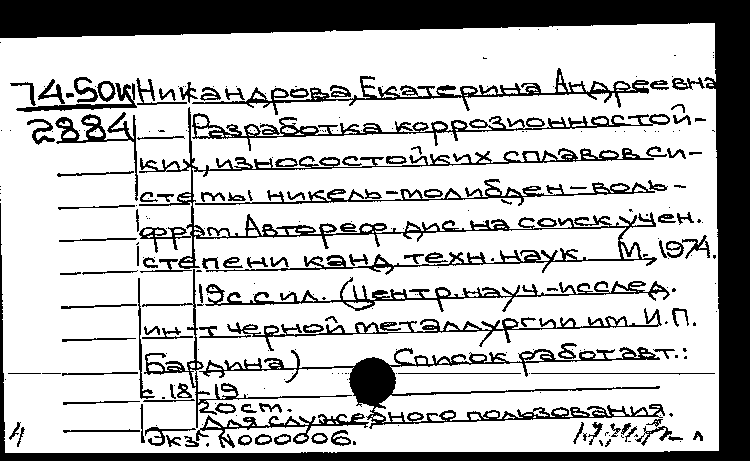 74-50к Никандрова, Екатерина Андреевна
2884 Разработка коррозионностой-
ких, износостойких сплавов си-
стемы никель-молибден-воль-
фрам. Автореф. дис. на соиск. учен.
степени канд. техн. наук. М., 1974.
19 с. с ил. (Центр. науч.-исслед.
ин-т черной металлургии им. И.П.
Бардина) Список работ авт.:
с. 18-19.
20 ст.
Для служебного пользования.
Экз. N000006.
4